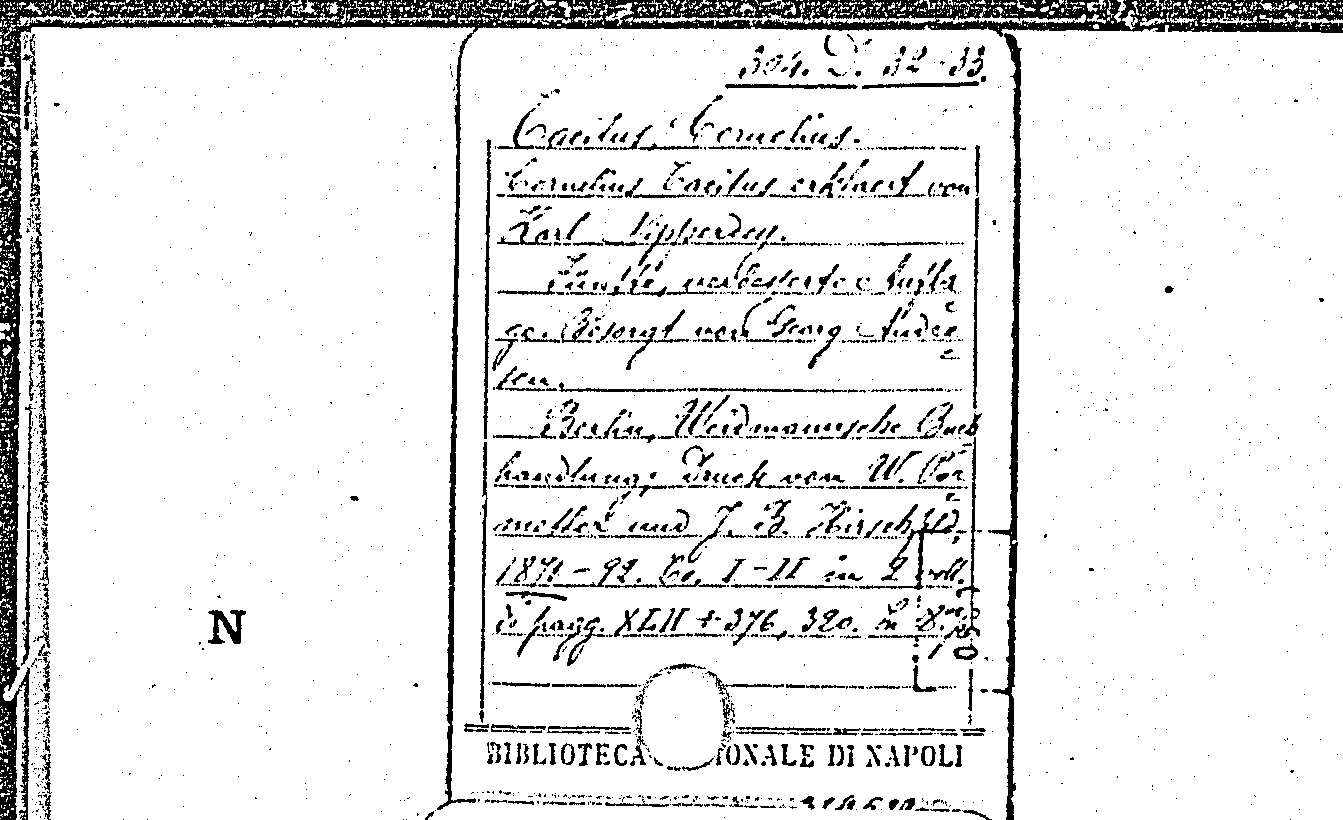 304. D. 32-33.
Tacitus, Cornelius.
Cornelius Tacitus erklaert von
Karl Nipperdey.
Fünfte, verbesserte Aufla-
ge. Besorgt von Georg Andre-
sen.
Berlin, Weidmannsche Buch-
handlung; Druck von W. For-
metter und J. B. Hirschfeld,
1871-92. Ti. I-II in 2 voll.
di pagg. XLII + 376, 320. In 8.º
N
BIBLIOTECA IONALE DI NAPOLI